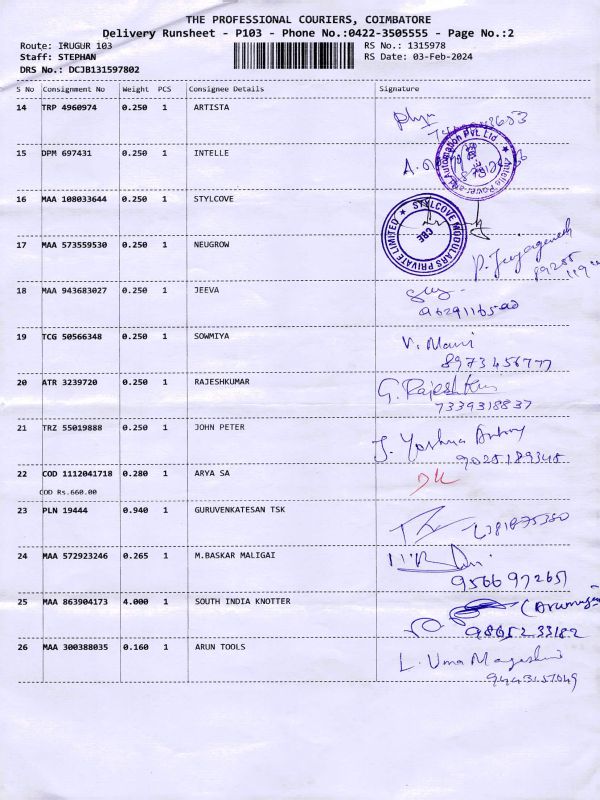 THE PROFESSIONAL COURIERS, COIMBATORE
Delivery Runsheet - P103 - Phone No.:0422-3505555 - Page No.:2
Route: IRUGUR 103 RS No.: 1315978
Staff: STEPHAN RS Date: 03-Feb-2024
DRS No.: DCJB131597802
S No Consignment No Weight PCS Consignee Details Signature
14 TRP 4960974 0.250 1 ARTISTA
15 DPM 697431 0.250 1 INTELLE
Automation Pvt Ltd
16 MAA 108033644 0.250 1 STYLCOVE
STYLCOVE MODULARS PRIVATE LIMITED
CBE
17 MAA 573559530 0.250 1 NEUGROW
18 MAA 943683027 0.250 1 JEEVA
19 TCG 50566348 0.250 1 SOWMIYA V. Mani
8973456777
20 ATR 3239720 0.250 1 RAJESHKUMAR G. Rajeshkum
7339318837
21 TRZ 55019888 0.250 1 JOHN PETER J. Yoshua Antony
9025189345
22 COD 1112041718 0.280 1 ARYA SA DL
COD Rs.660.00
23 PLN 19444 0.940 1 GURUVENKATESAN TSK
24 MAA 572923246 0.265 1 M.BASKAR MALIGAI
9566972651
25 MAA 863904173 4.000 1 SOUTH INDIA KNOTTER
9865233182
26 MAA 300388035 0.160 1 ARUN TOOLS L. Uma Mageshwari
9443157049